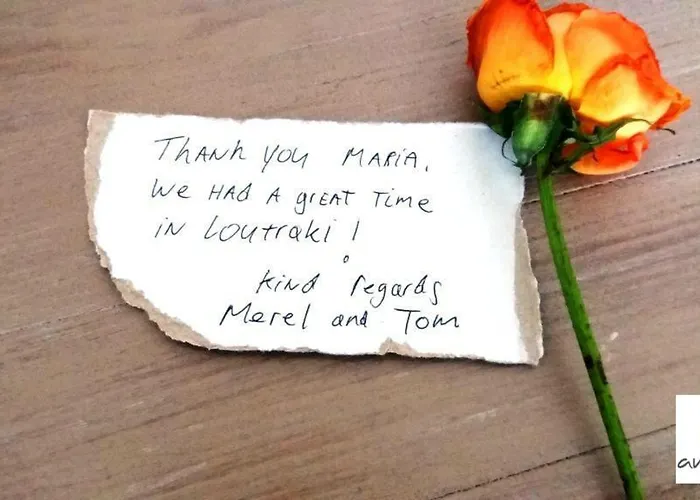 Thank you Maria.
We had a great time
in Loutraki!
kind regards
Merel and Tom